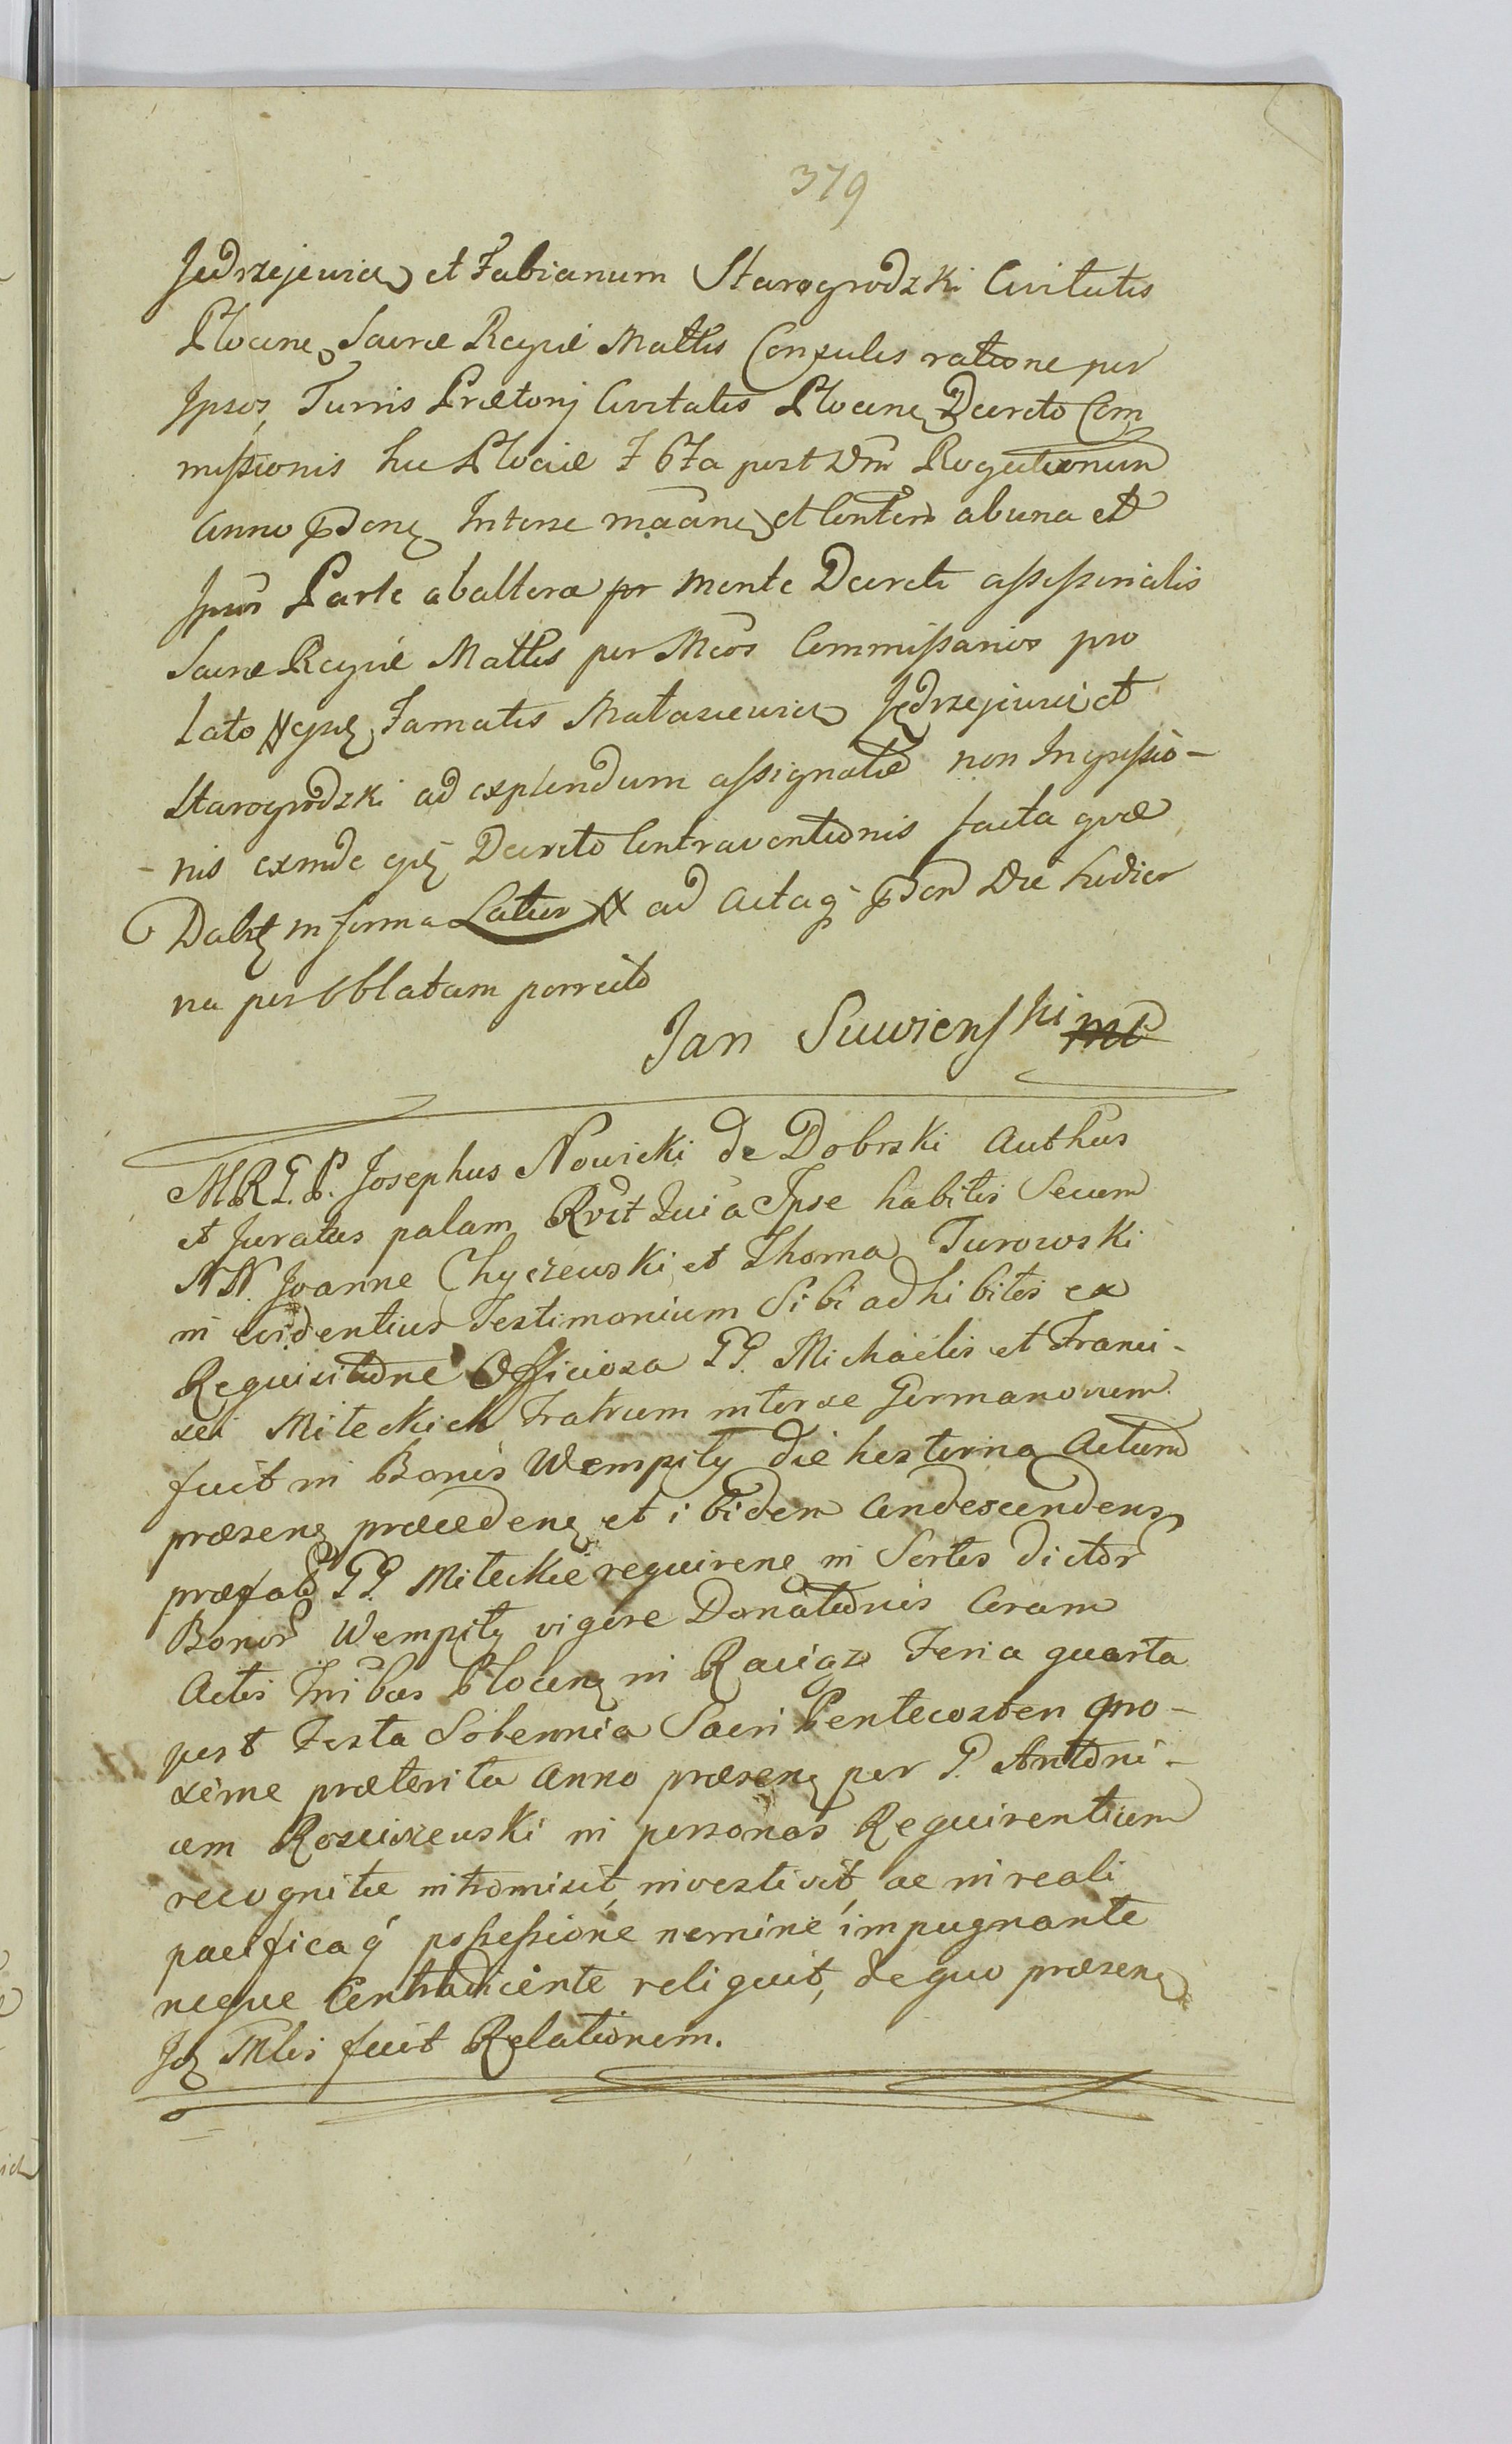 379
Jedrzejewicz et Fabianum Starogrodzki Civitatis
Plocen Sacræ Regiæ Mattis Consules ratione per
Ipsos Turris Prætorij Civitatis Plocen Decreto Com
missionis hic Plociæ F 6ta post Dnī Rogationum
Anno pden Interse et ab una et
Parte ab altera per mente Decreti assessorialis
Sacræ Regiæ Mattis per Commissarios pro
lato Famatis Matasiewicz Jędrzejewi et
Starogrodzki ad explendum assignatæ non Ingressio-
-nis exinde Decreto Contraventionis facta quæ
in forma Latur ad Actaq pden Die hodier
na per Oblatam porrecto
Jan Suwienski mp
M.R.G.P. Josephus Nowicki de Dobrski Authus
et Juratus palam Rvit Quia Ipse habitis Secum
NN. Joanne Chyczewski et Thoma Turowski
in evidentius Testimonium Sibi adhibitis ex
Requisitione Officiosa GG. Michaelis et Franci-
sci Miteckich Fratrum interse Germanorum
fuit in Bonis Wempiły die hesterna Actum
præsen præceden et ibidem Condescendens
præfatos GG. Miteckie requiren in Sortes dictor
Bonor Wempiły vigore Donationis Coram
Actis Tribus Plocen in Raciąż Feria quarta
post Festa Solennia Sacri Pentecosten pro-
xime præterita Anno præsen per G. Antoni-
um Rosciszewski in personas Requirentium
recognitæ intromisit, investivit, ac in reali
pacificaq possessione nemine impugnante
neque Contradicente reliquit, de quo præsen
fecit Relationem.